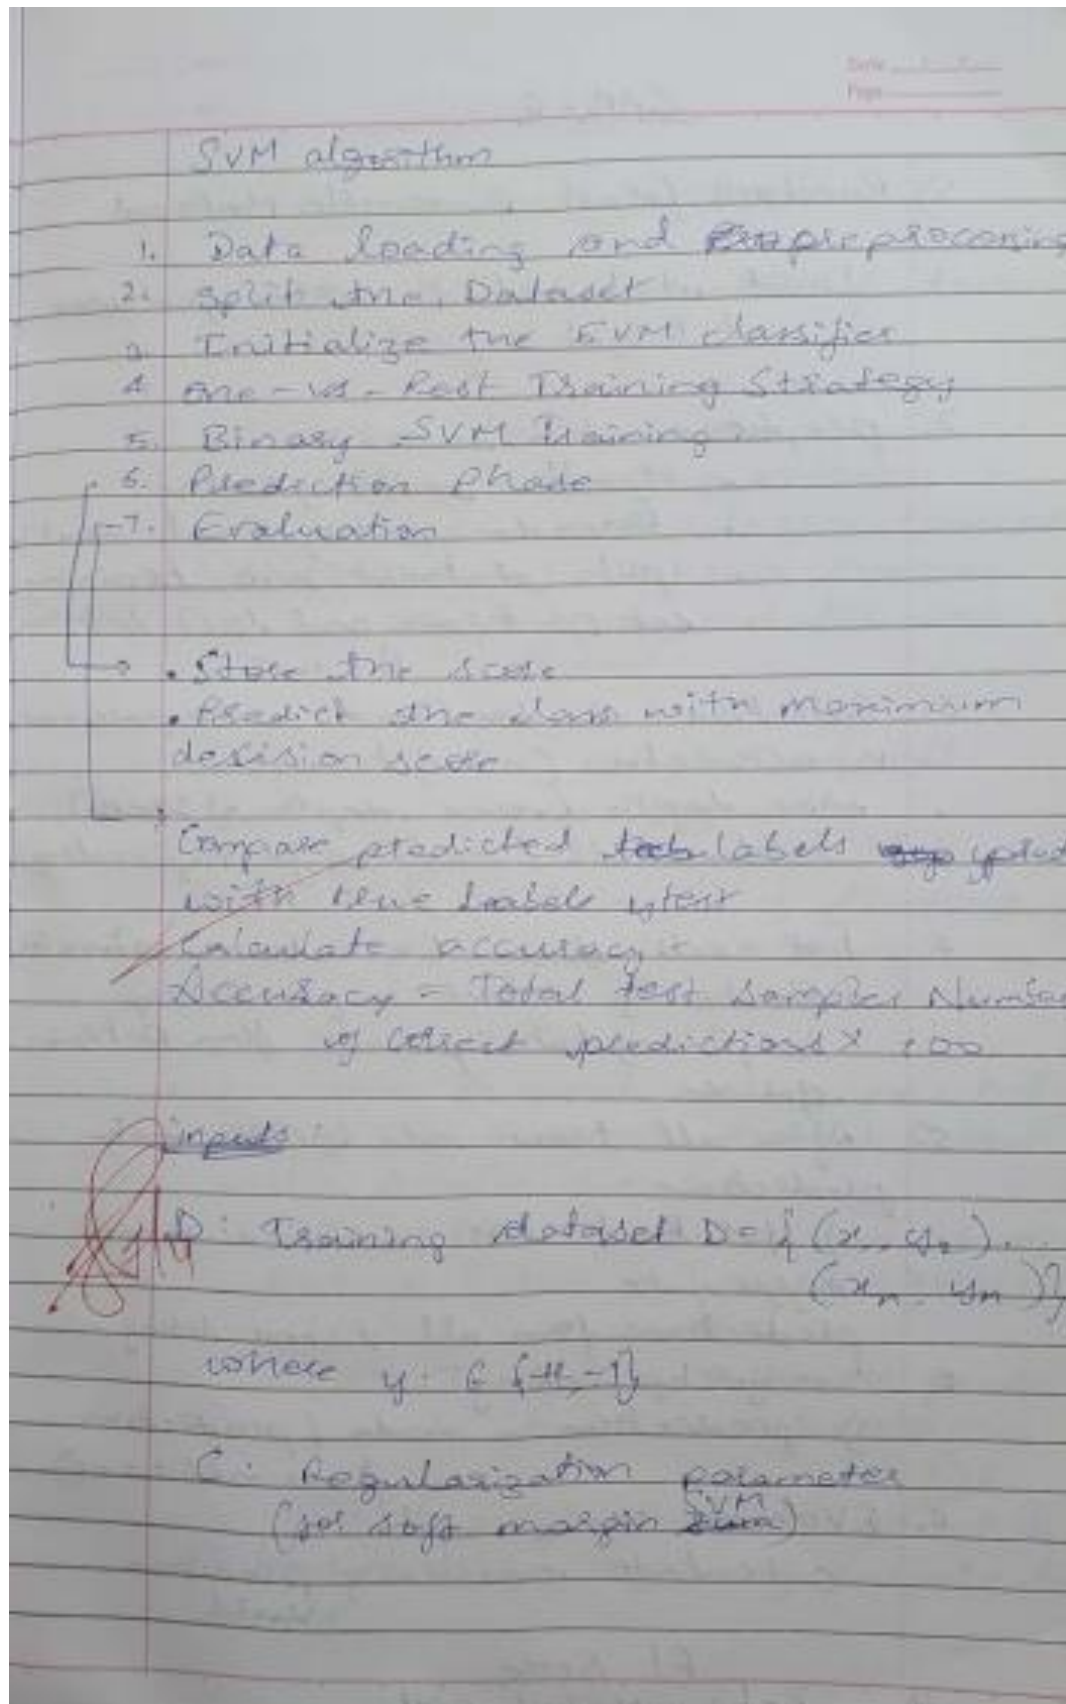 Date
Page
SVM algorithm
1. Data loading and preprocessing
2. split the Dataset
3. Initialize the SVM classifier
4. One-vs-Rest Training Strategy
5. Binary SVM Training
6. Prediction Phase
7. Evaluation
• Store the score
• Predict the class with maximum
desision score
Compare predicted labels ypred
with true labels ytest
Calculate accuracy
Accuracy = Total test samples Number
of correct predictions × 100
inputs:
D: Training dataset D = {(x
(xn, yn)}
where y ∈ {+1, -1}
C: Regularization parameter
(for soft margin SVM)